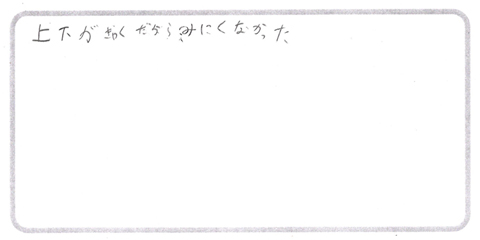 上下が くだからみにくなかった